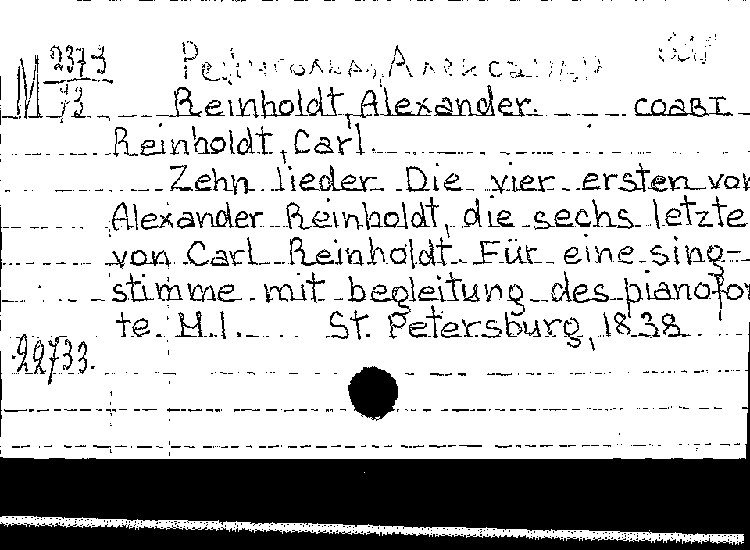 M 2373/73
Рейнгольд, Александр
Reinholdt, Alexander. СОАВТ
Reinholdt, Carl.
Zehn lieder. Die vier ersten von
Alexander Reinholdt, die sechs letzte
von Carl Reinholdt. Für eine sing-
stimme mit begleitung des pianofor
te. H.1. St. Petersburg, 1838
22733.